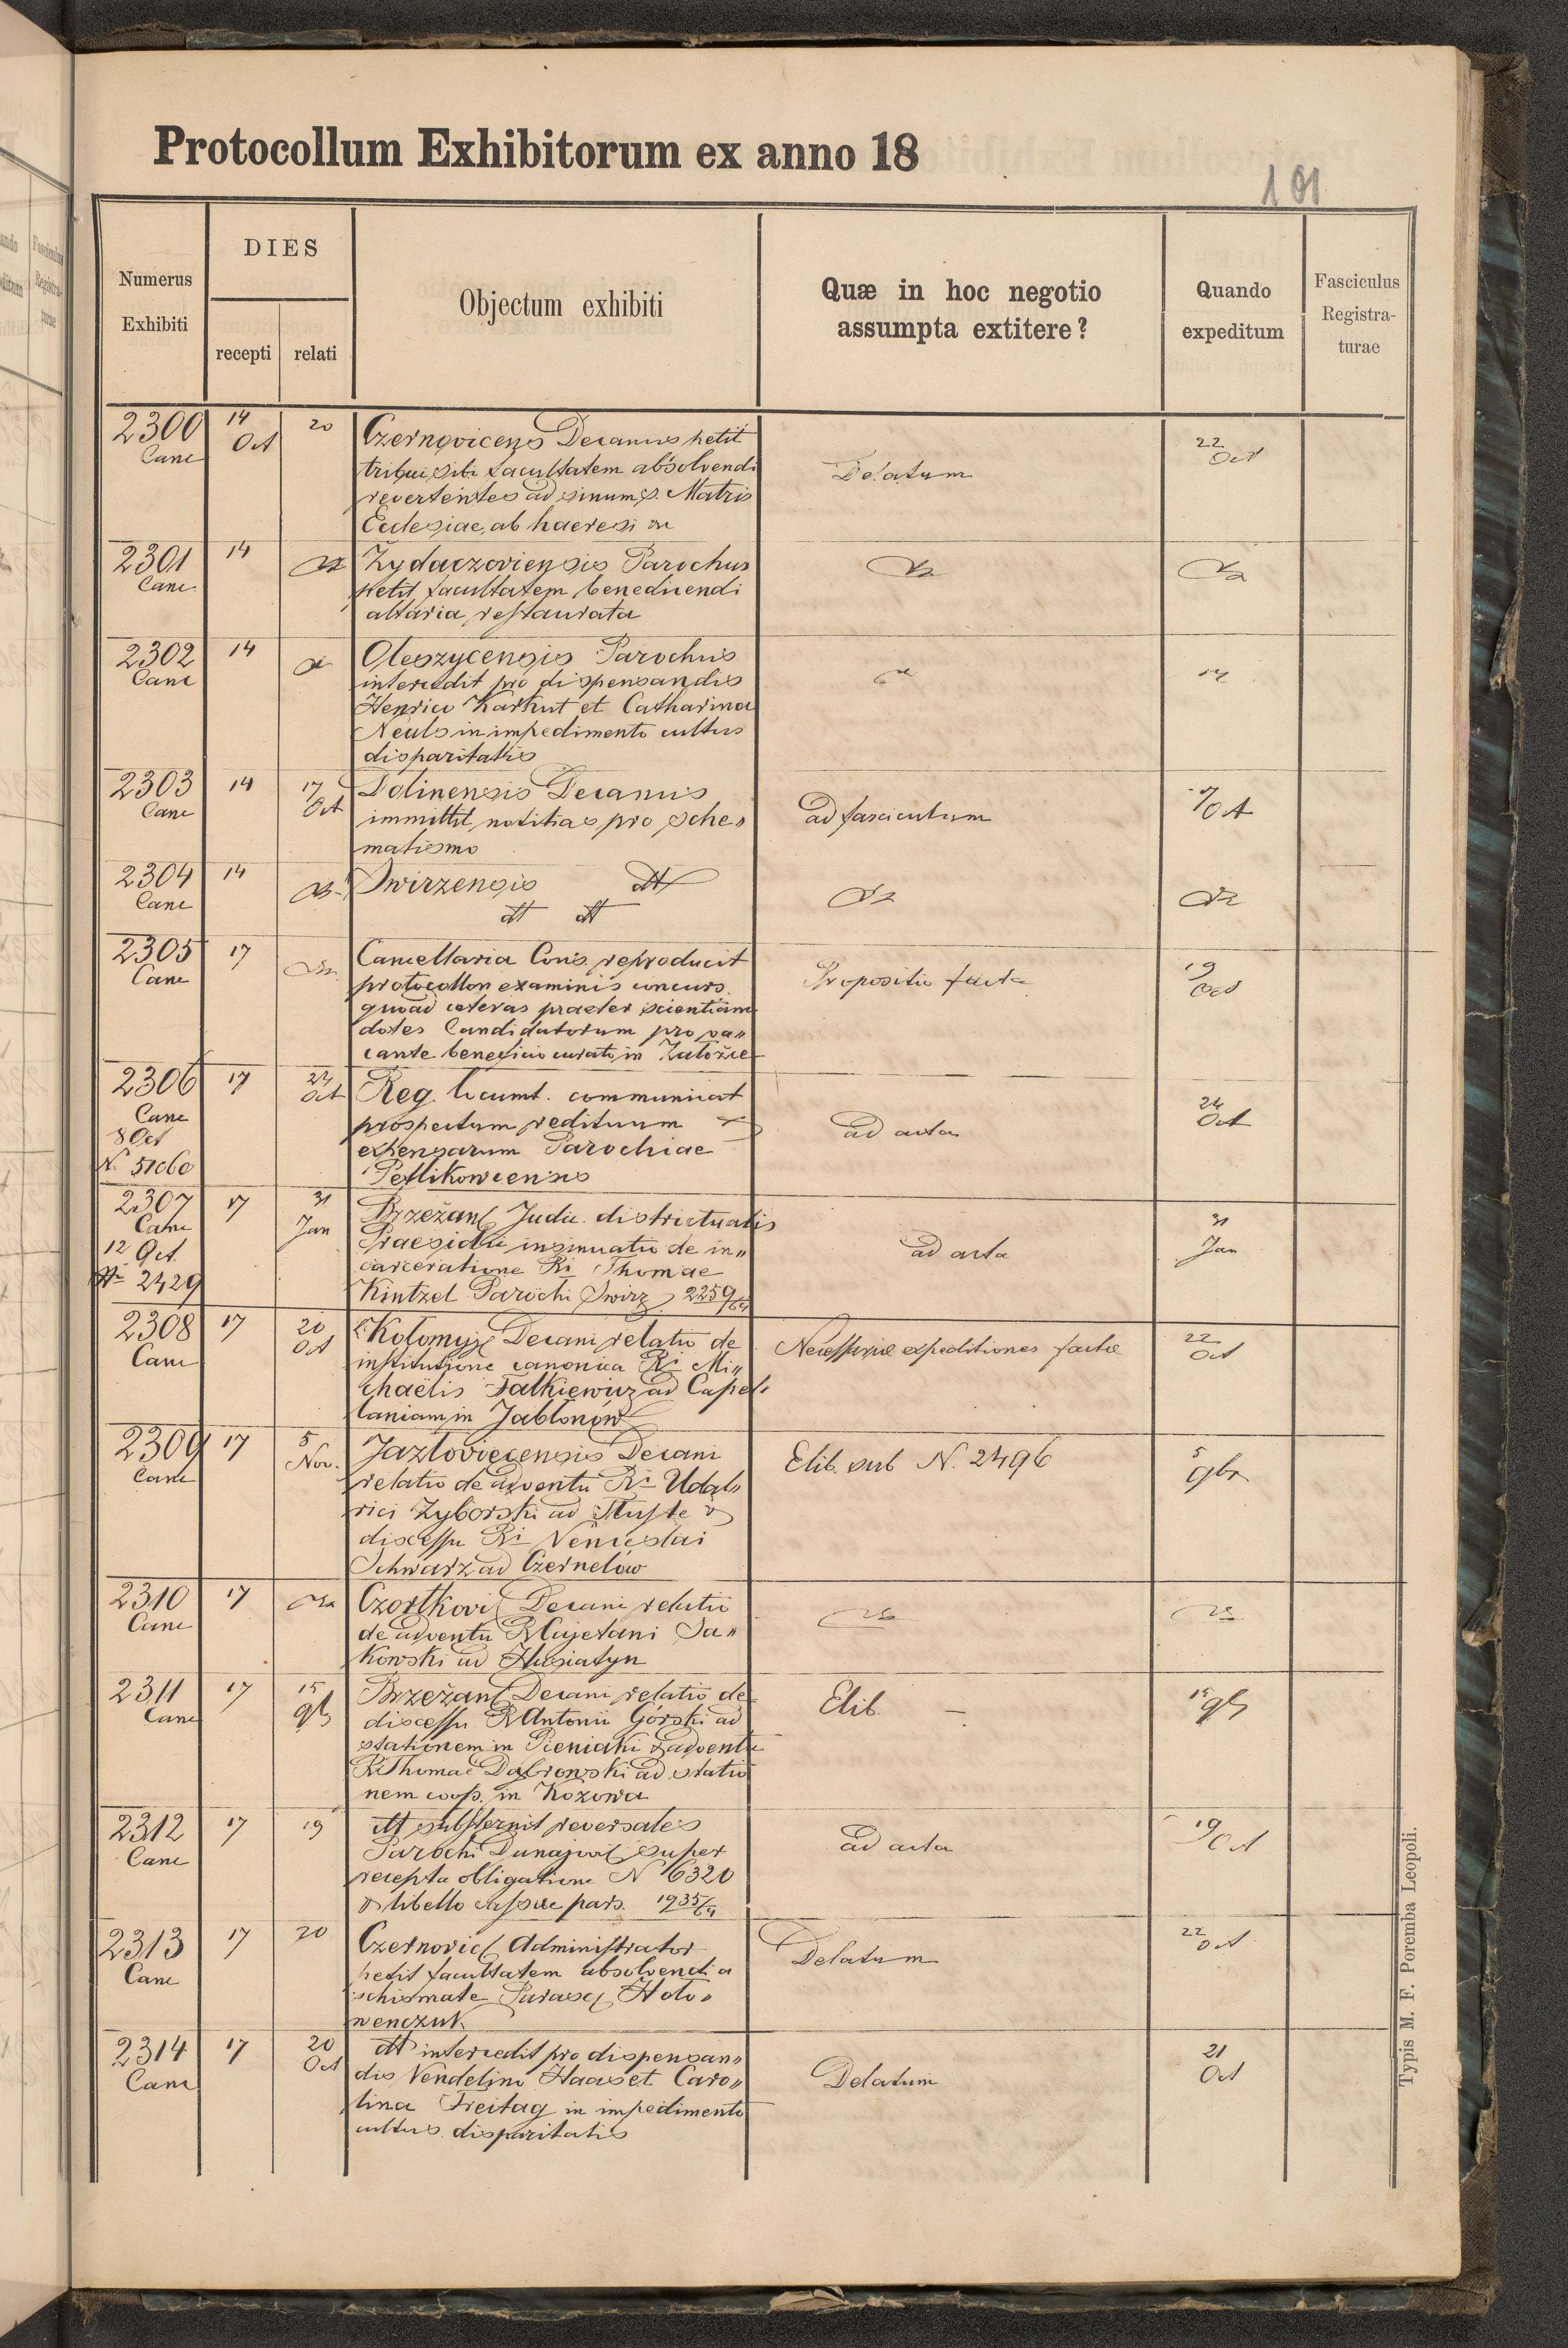 Protocollum Exhibitorum ex anno 18
101
Numerus Exhibiti
DIES
recepti relati
Objectum exhibiti
Quæ in hoc negotio assumpta extitere?
Quando expeditum
Fasciculus Registra-turae
2300 Canc
14 Oct
20
Czernovicens Decanus petit
tribui sibi facultatem absolvendi
revertentes ad sinum s. Matris
Ecclesiae, ab haeresi
Delatum
22 Oct
2301 Canc
14
Żydaczoviensis Parochus
petit facultatem benedicendi
altaria restaurata
2302 Canc
14
Oleszycensis Parochus
intercedit pro dispensandis
Henrico Karhut et Catharina
Neuls in impedimento cultus
disparitatis
2303 Canc
14
17 Oct
Dolinensis Decanus
immittit notitias pro sche„
matismo
ad fasciculum
17 Oct
2304 Canc
14
Swirzensis dtt
dtt dtt
2305 Canc
17
Cancellaria Cons. reproducit
protocollon examinis concurs.
quoad ceteras praeter scientiam
dotes Candidatorum pro va„
cante beneficio curato in Załoźce
Propositio facta
19 Oct
2306 Canc
8 Oct
N. 51060
17
24 Oct
Reg. locumt. communicat
prospectum redituum &
expensarum Parochiae
Petlikowcensis
ad acta
24 Oct
2307 Canc
12 Oct
N 2429
17
31 Jan
Brzeżan Judic. districtualis
Praesidii insinuatio de in„
carceratione Ri Thomae
Kintzel Parochi Swirz 2259/64
ad acta
31 Jan
2308 Canc
17
20 Oct
Kołomyj Decani relatio de
institutione canonica Ri Mi„
chaëlis Falkiewicz ad Capel„
laniam in Jabłonów
Necessariae expeditiones factae
22 Oct
2309 Canc
17
5 Nov.
Jazłoviecensis Decani
relatio de adventu Ri Udal„
rici Zyborski ad Tłuste &
discessu Ri Venceslai
Schwarz ad Czernelów
Elib. sub N. 2496
5 9br
2310 Canc
17
Czortkovi Decani relatio
de adventu R Cajetani Sa„
kowski ad Husiatyn
2311 Canc
17
15 9b
Brzeżan Decani relatio de
discessu R Antonii Górski ad
stationem in Pieniaki & adventu
R Thomae Dąbrowski ad statio
nem coop. in Kozowa
Elib. —
15 9b
2312 Canc
17
19
dtt substernit reversales
Parochi Dunajovi super
recepta obligatione N 6320
& libello cassae pars. 1935/64
ad acta
19 Oct
2313 Canc
17
20
Czernovic Administrator
petit facultatem absolvendi a
schismate Parasc Hoto„
wenczuk
Delatum
22 Oct
2314 Canc
17
20 Oct
dtt intercedit pro dispensan„
dis Vendelino Haas et Caro„
lina Freitag in impedimento
cultus disparitatis
Delatum
21 Oct
Typis M. F. Poremba Leopoli.